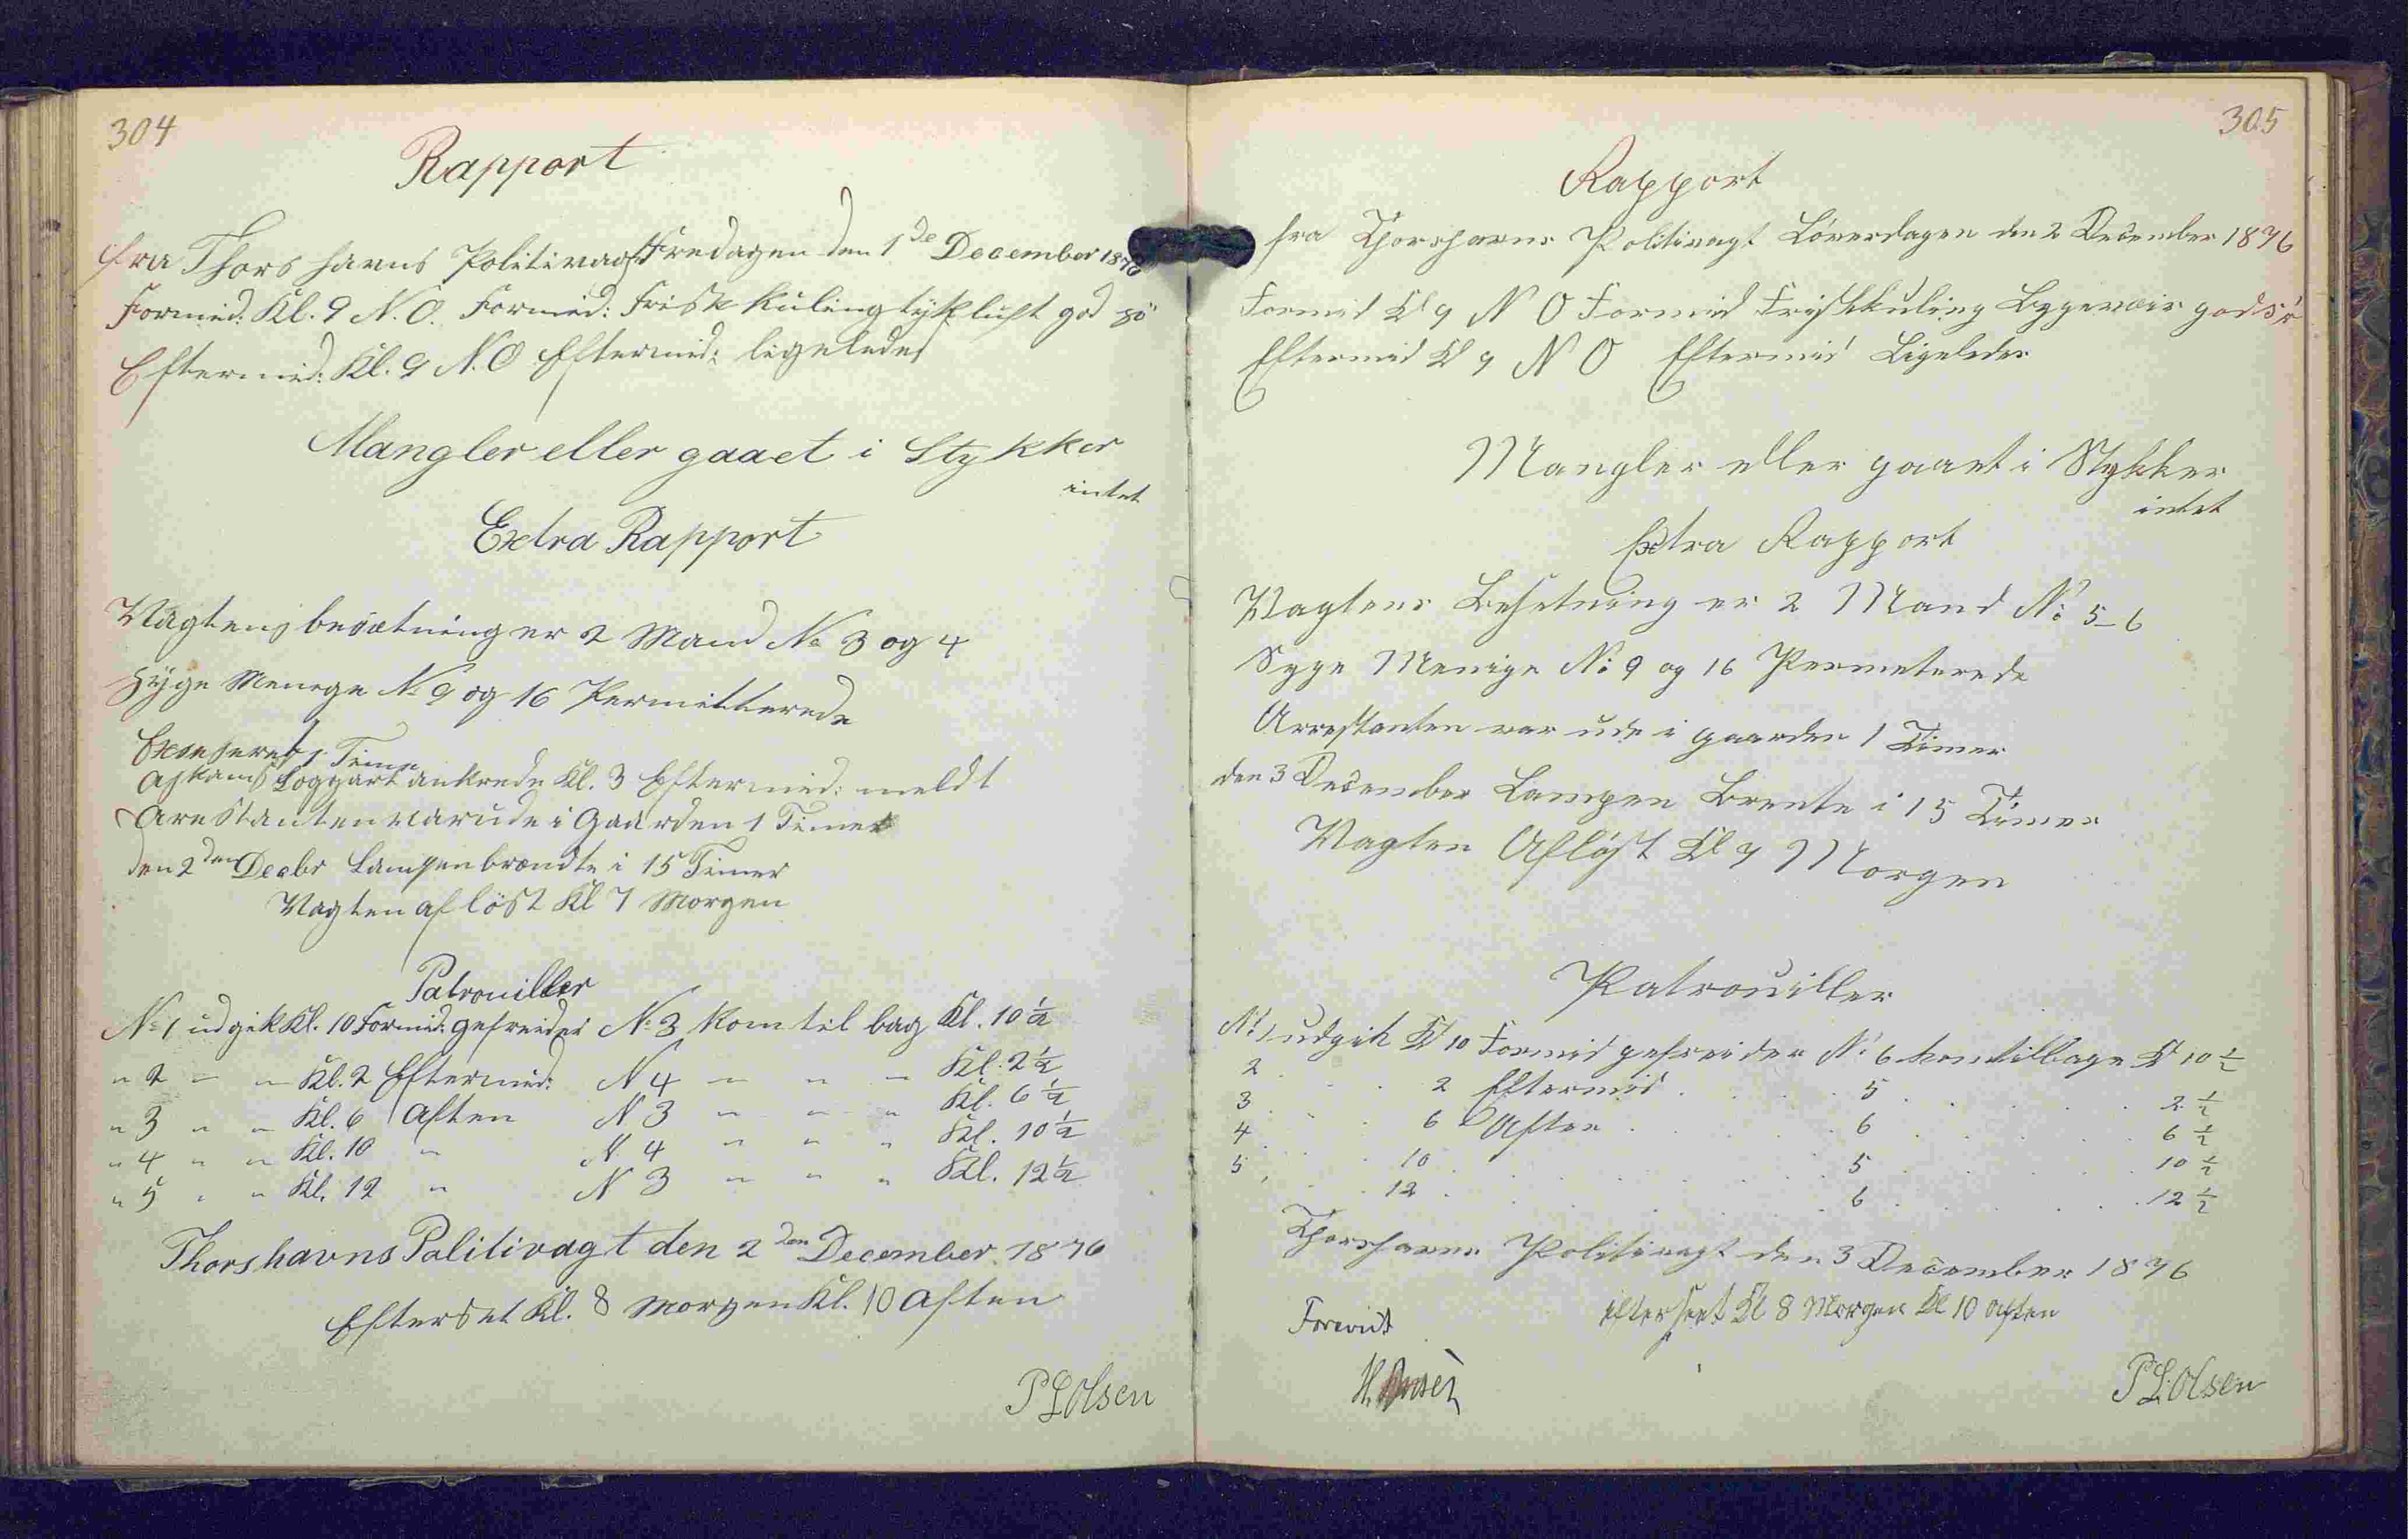 304
Rapport
fra Thorshavns Politivagt Fredagen den 1de December 1876
Formid: Kl. 9 N.O. Formid: Frisk Kuling tyk luft god sö
Eftermid: Kl. 9 N.O Eftermid: ligeledes
Mangler eller gaaet i Stykker
intet
Extra Rapport
Vagtens besætning er 2 Mand No 3 og 4
Syge Menege No 9 og 16 Permitterede
Exseseret 1 Time
Loggart ankrede Kl. 3 Eftermid: meldt
Arestanten var ude i Gaarden 1 Timer
den 2den Decbr Lampen brændte i 15 Timer
Vagten aflöst Kl 7 Morgen
Patrouiller
No 1 udgik Kl. 10 Formid: gefreider No 3 kom tilbag Kl. 10 1/2
" 2 " " Kl. 2 Eftermid: N 4 " " " Kl. 2 1/2
" 3 " " Kl. 6 Aften N 3 " " " Kl. 6 1/2
" 4 " " Kl. 10 " N 4 " " " Kl. 10 1/2
" 5 " " Kl. 12 " N 3 " " " Kl. 12 1/2
Thorshavns Politivagt den 2den December 1876
Efterset Kl. 8 Morgen Kl. 10 Aften
P L Olsen
305
Rapport
fra Thorshavns Politivagt Löverdagen den 2 December 1876
Formid Kl 9 N O Formid Friskkuling Bygeveir god sö
Eftermid Kl 9 N O Eftermid Ligeledes
Mangler eller gaaet i Stykker
intet
Extra Rapport
Vagtens Besetning er 2 Mand No 5-6
Syge Menige No 9 og 16 Permeterede
Arrestanten var ude i gaarden 1 Timer
den 3 December Lampen Brente i 15 Timer
Vagten Aflöst Kl 7 Morgen
Patrouiller
No 1 udgik Kl 10 Formid gefreider No 6 kom tilbage Kl 10 1/2
2 . . . 2 Eftermid . . . 5 . . . 2 1/2
3 . . . 6 Aften . . . 6 . . . 6 1/2
4 . . . 10 . . . 5 . . . 10 1/2
5 . . . 12 . . . 6 . . . 12 1/2
Thorshavns Politivagt den 3 December 1876
efterseet Kl 8 Morgen Kl 10 Aften
Forevist
P L Olsen